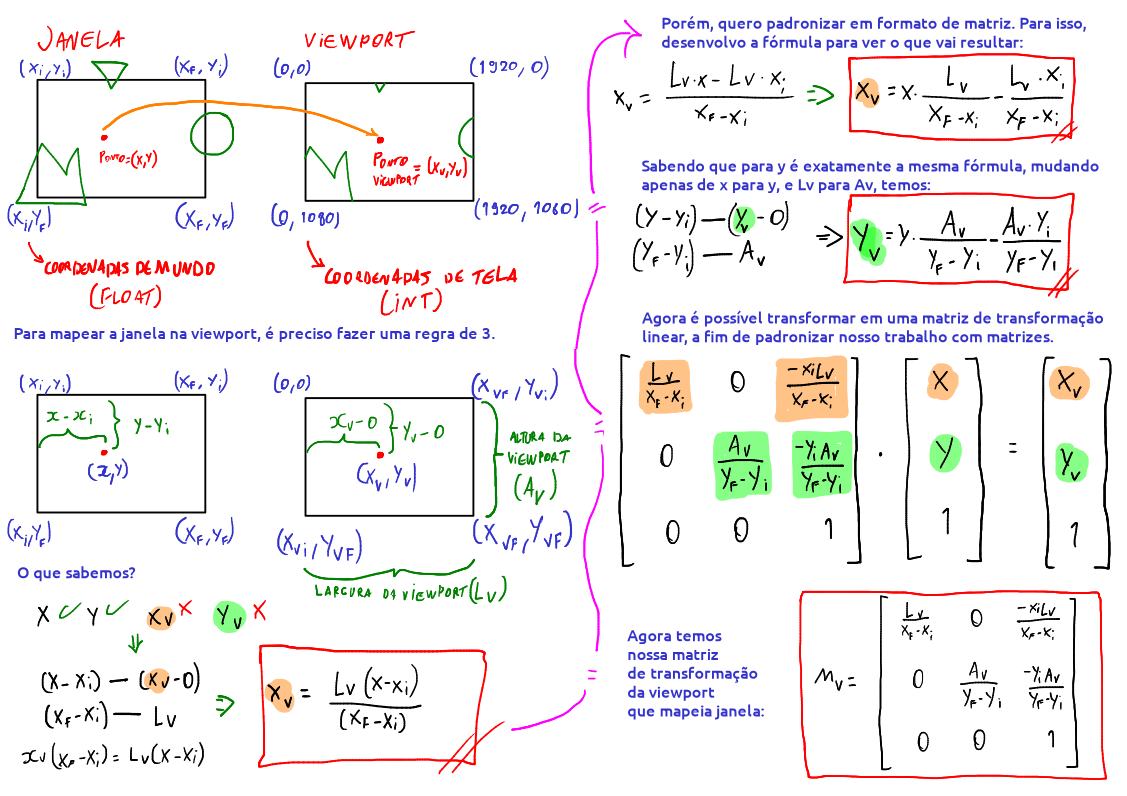 JANELA
(xi, yi)
(xF, yi)
PONTO=(x,y)
(xi, yF)
(xF, yF)
COORDENADAS DE MUNDO
(FLOAT)
VIEWPORT
(0,0)
(1920, 0)
PONTO VIEWPORT = (xv, yv)
(0, 1080)
(1920, 1060)
COORDENADAS DE TELA
(INT)
Para mapear a janela na viewport, é preciso fazer uma regra de 3.
(xi, yi)
(xF, yi)
x-xi
y-yi
(x,y)
(xi, yF)
(xF, yF)
(0,0)
(xVF, yVi)
xv-0
yv-0
(xv, yv)
ALTURA DA
VIEWPORT
(Av)
(xVi, yVF)
(xVF, yVF)
LARGURA DA VIEWPORT (Lv)
O que sabemos?
x ✓ y ✓ xv × yv ×
(x-xi) — (xv-0)
(xF-xi) — Lv
xv(xF-xi) = Lv(x-xi)
⇒
xv = Lv(x-xi) / (xF-xi)
Porém, quero padronizar em formato de matriz. Para isso,
desenvolvo a fórmula para ver o que vai resultar:
xv = (Lv·x - Lv·xi) / (xF-xi) ⇒ xv = x · Lv/(xF-xi) - Lv·xi/(xF-xi)
Sabendo que para y é exatamente a mesma fórmula, mudando
apenas de x para y, e Lv para Av, temos:
(y-yi) — (yv-0)
(yF-yi) — Av
⇒ yv = y · Av/(yF-yi) - Av·yi/(yF-yi)
Agora é possível transformar em uma matriz de transformação
linear, a fim de padronizar nosso trabalho com matrizes.
Lv/(xF-xi) 0 -xiLv/(xF-xi) x xv
0 Av/(yF-yi) -yiAv/(yF-yi) · y = yv
0 0 1 1 1
Agora temos
nossa matriz
de transformação
da viewport
que mapeia janela:
Lv/(xF-xi) 0 -xiLv/(xF-xi)
Mv = 0 Av/(yF-yi) -yiAv/(yF-yi)
0 0 1